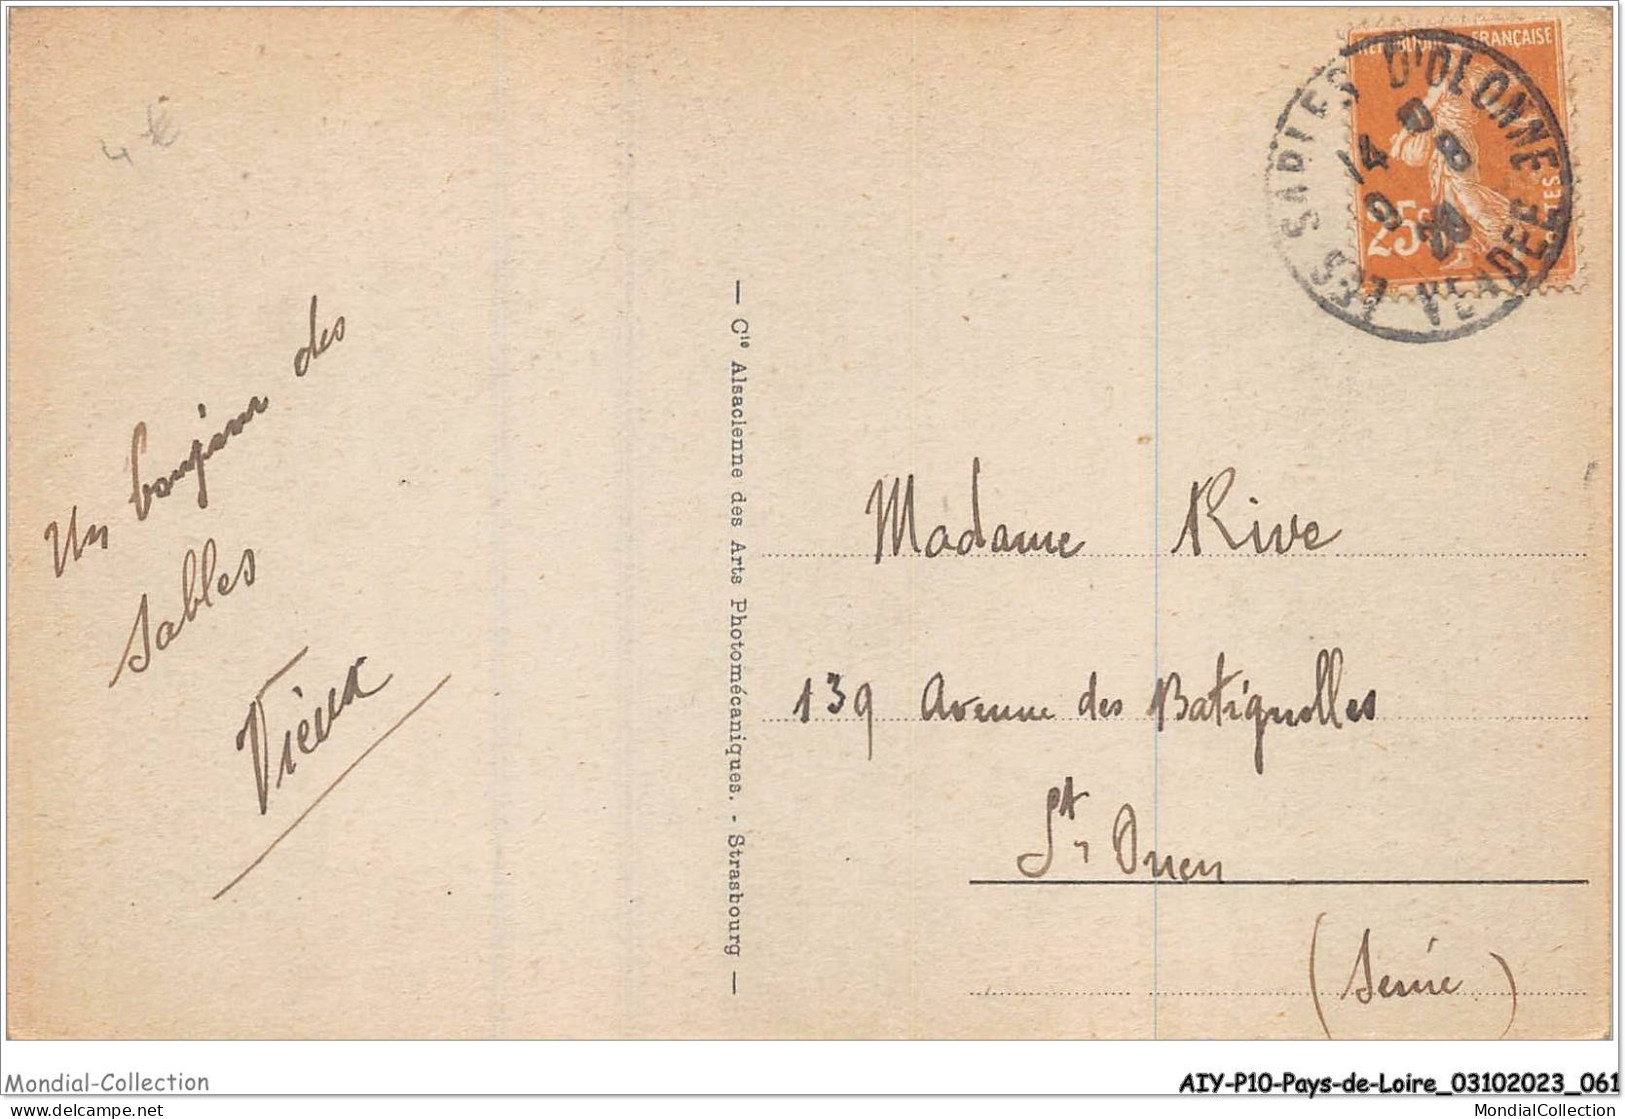 4 €
Un bonjour des
Sables
Vieux
— Cie Alsacienne des Arts Photomécaniques. - Strasbourg —
REPUBLIQUE FRANÇAISE
25c
POSTES
LES SABLES D'OLONNE
VENDEE
Madame Rive
139 Avenue des Batignolles
St Ouen
(Seine)
Mondial-Collection
AIY-P10-Pays-de-Loire_03102023_061
delcampe.net
MondialCollection